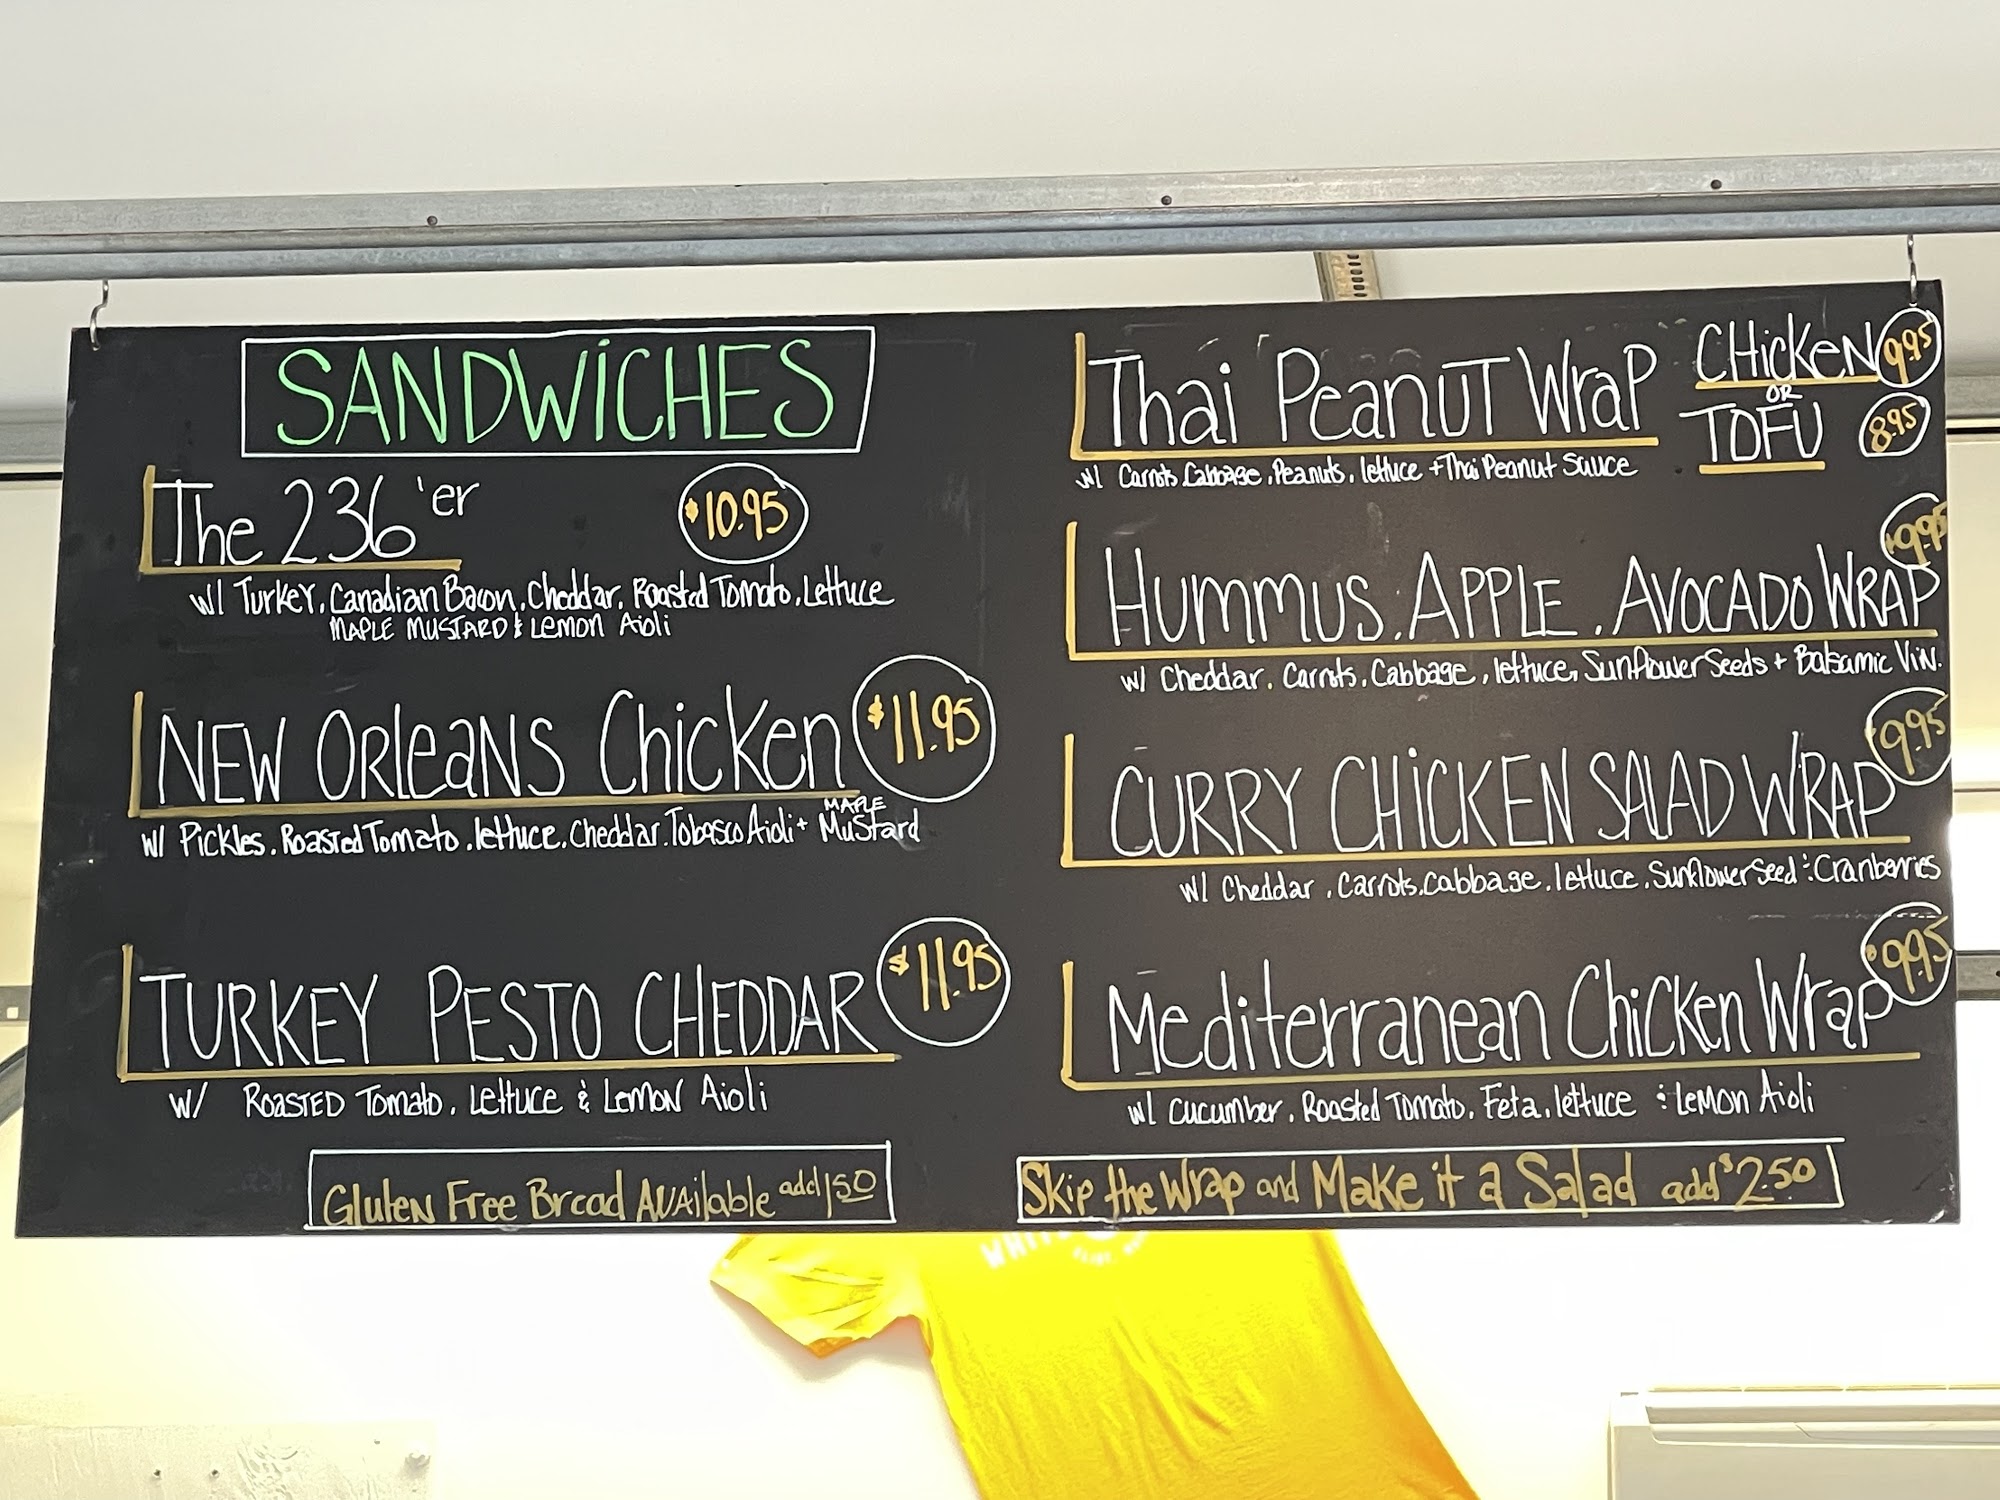 SANDWICHES
The 236'er $10.95
w/ Turkey, Canadian Bacon, Cheddar, Roasted Tomato, Lettuce
MAPLE MUSTARD & LEMON Aioli
NEW ORleaNS Chicken $11.95
w/ Pickles, Roasted Tomato, lettuce, Cheddar, Tobasco Aioli + MAPLE MuStard
TURKEY PESTO CHEDDAR $11.95
w/ ROASTED TOMATO, LETTUCE & LEMON Aioli
Gluten Free Bread Available add 1.50
Thai Peanut Wrap CHICKEN 9.95
OR
TOFU 8.95
w/ Carrots, Cabbage, Peanuts, lettuce + Thai Peanut Sauce
HUMMUS, APPLE, AVOCADO WRAP $9.95
w/ Cheddar, Carrots, Cabbage, lettuce, Sunflower Seeds + Balsamic Vin.
CURRY CHICKEN SALAD WRAP $9.95
w/ Cheddar, Carrots, Cabbage, lettuce, Sunflower Seed & Cranberries
Mediterranean Chicken Wrap $9.95
w/ Cucumber, Roasted Tomato, Feta, lettuce & Lemon Aioli
Skip the Wrap and Make it a Salad add $2.50